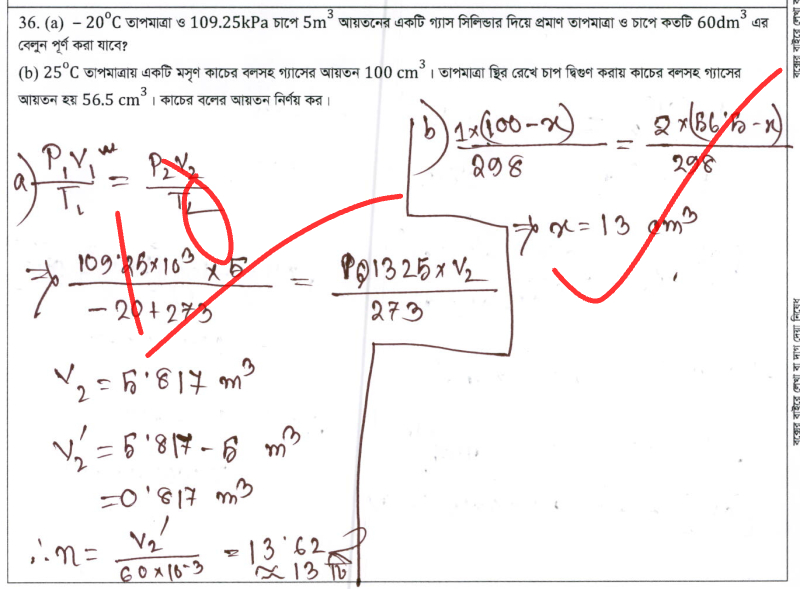 36. (a) – 20⁰C তাপমাত্রা ও 109.25kPa চাপে 5m³ আয়তনের একটি গ্যাস সিলিন্ডার দিয়ে প্রমাণ তাপমাত্রা ও চাপে কতটি 60dm³ এর
বেলুন পূর্ণ করা যাবে?
(b) 25⁰C তাপমাত্রায় একটি মসৃণ কাচের বলসহ গ্যাসের আয়তন 100 cm³। তাপমাত্রা স্থির রেখে চাপ দ্বিগুণ করায় কাচের বলসহ গ্যাসের
আয়তন হয় 56.5 cm³। কাচের বলের আয়তন নির্ণয় কর।
a) P₁V₁/T₁ = P₂V₂/T₂
⇒ 109.25×10³ × 5 / -20+273 = 101325 × V₂ / 273
V₂ = 5.817 m³
V₂′ = 5.817 – 5 m³
= 0.817 m³
∴ n = V₂′ / 60×10⁻³ = 13.62
≈ 13 টি
b) 1×(100–x) / 298 = 2×(56.5–x) / 298
⇒ x = 13 cm³